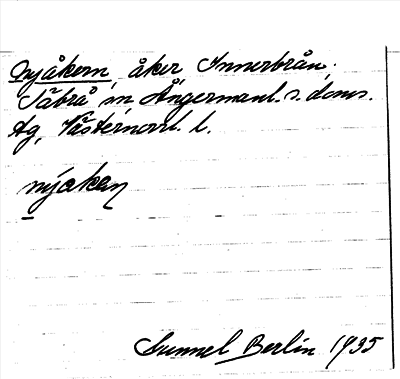 Nyåkern, åker, Innerbrån,
Säbrå sn, Ångermanl. s. doms.
tg, Västernorrl. l.
nýaken
Gunnel Berlin 1935